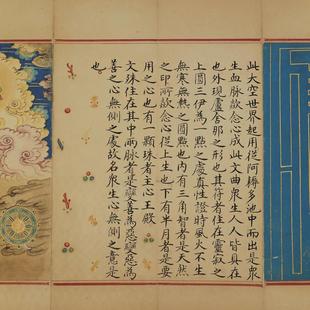 此大空世界起用從阿耨多池中而出是衆
生血脉故念心成此文曲衆生人人皆具在
也外現盧舍那之形也其符者在靈寂之
上圓三伊為一點之處真性證時風火不生
無寒無熱之圓點也内有三角智者是天然
之印所故念心從上生也下有半月者是要
用之心也有一顆珠者主心王殿
文殊住在其中兩脉者是雙喜為惡雙惡為
善之心無側之處故名衆生心無側之意是
也